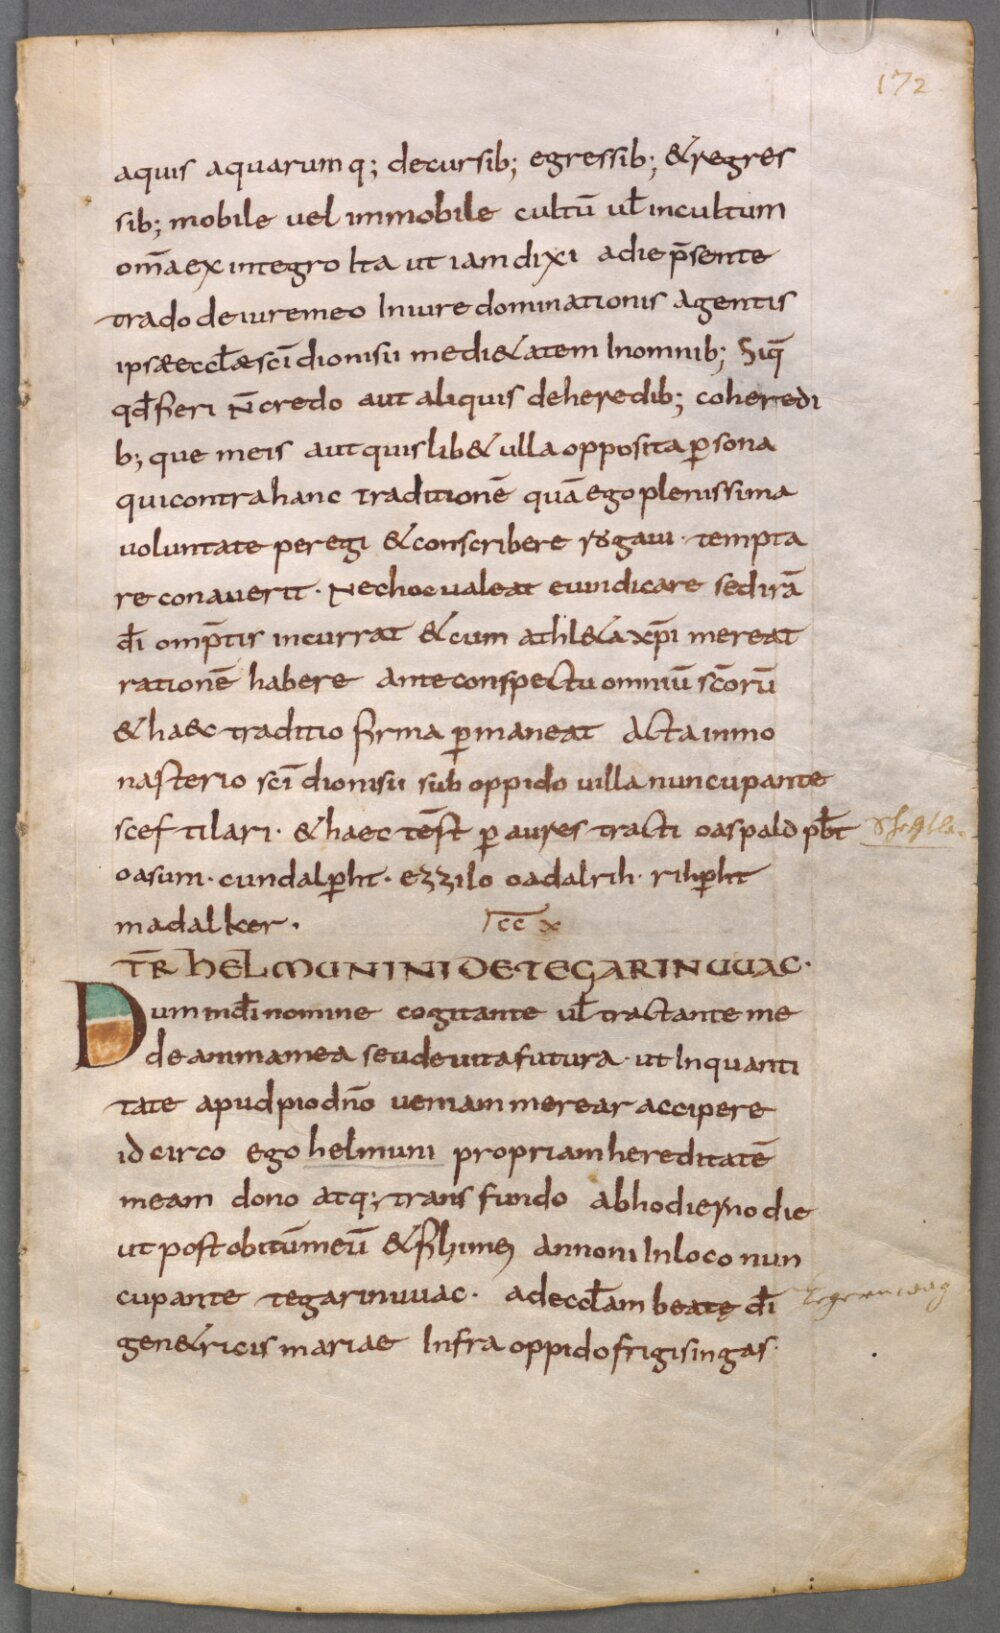 172
aquis aquarumq; decursib; egressib; &regres
sib; mobile uel immobile cultū ul̄ incultum
om̄a ex integro Ita ut iam dixi adie p̄sente
trado de iure meo In iure dominationis agentis
ipsae eccl̄ae sc̄i dionisii medi&atem In omnib; Siq̄
qd̄ fieri n̄ credo aut aliquis de heredib; coheredi
b; que meis aut quislib& ulla opposita p̱sona
qui contra hanc traditionē quā ego plenissima
uoluntate peregi & conscribere rogaui · tempta
re conauerit · Nec hoc ualeat euindicare sed irā
d̄i omp̄tis incurrat & cum athl&a xp̄i mereat
rationē habere Ante conspectu omniū sc̄orū
& haec traditio firma p̱maneat Acta in mo
nasterio sc̄i dionisii sub oppido uilla nuncupante
sceftilari · & haec tēst p̱ aures tracti oaspald pb̄t
oasum · cundalp̱ht · ezzilo oadalrih · rihp̱ht
madalker ·
cc x
TR̄ HELMUNINI DE TEGARINUUAC ·
Dum in d̄i nomine cogitante ul̄ tractante me
de anima mea seu de uita futura · ut In quanti
tate apud pio dn̄o ueniam merear accipere
idcirco ego helmuni propriam hereditatē
meam dono atq; transfundo ab hodierno die
ut post obitū meū & filii mei annoni In loco nun
cupante tegarinuuac · ad eccl̄am beatę d̄i
gen&ricis mariae Infra oppido frigisingas ·